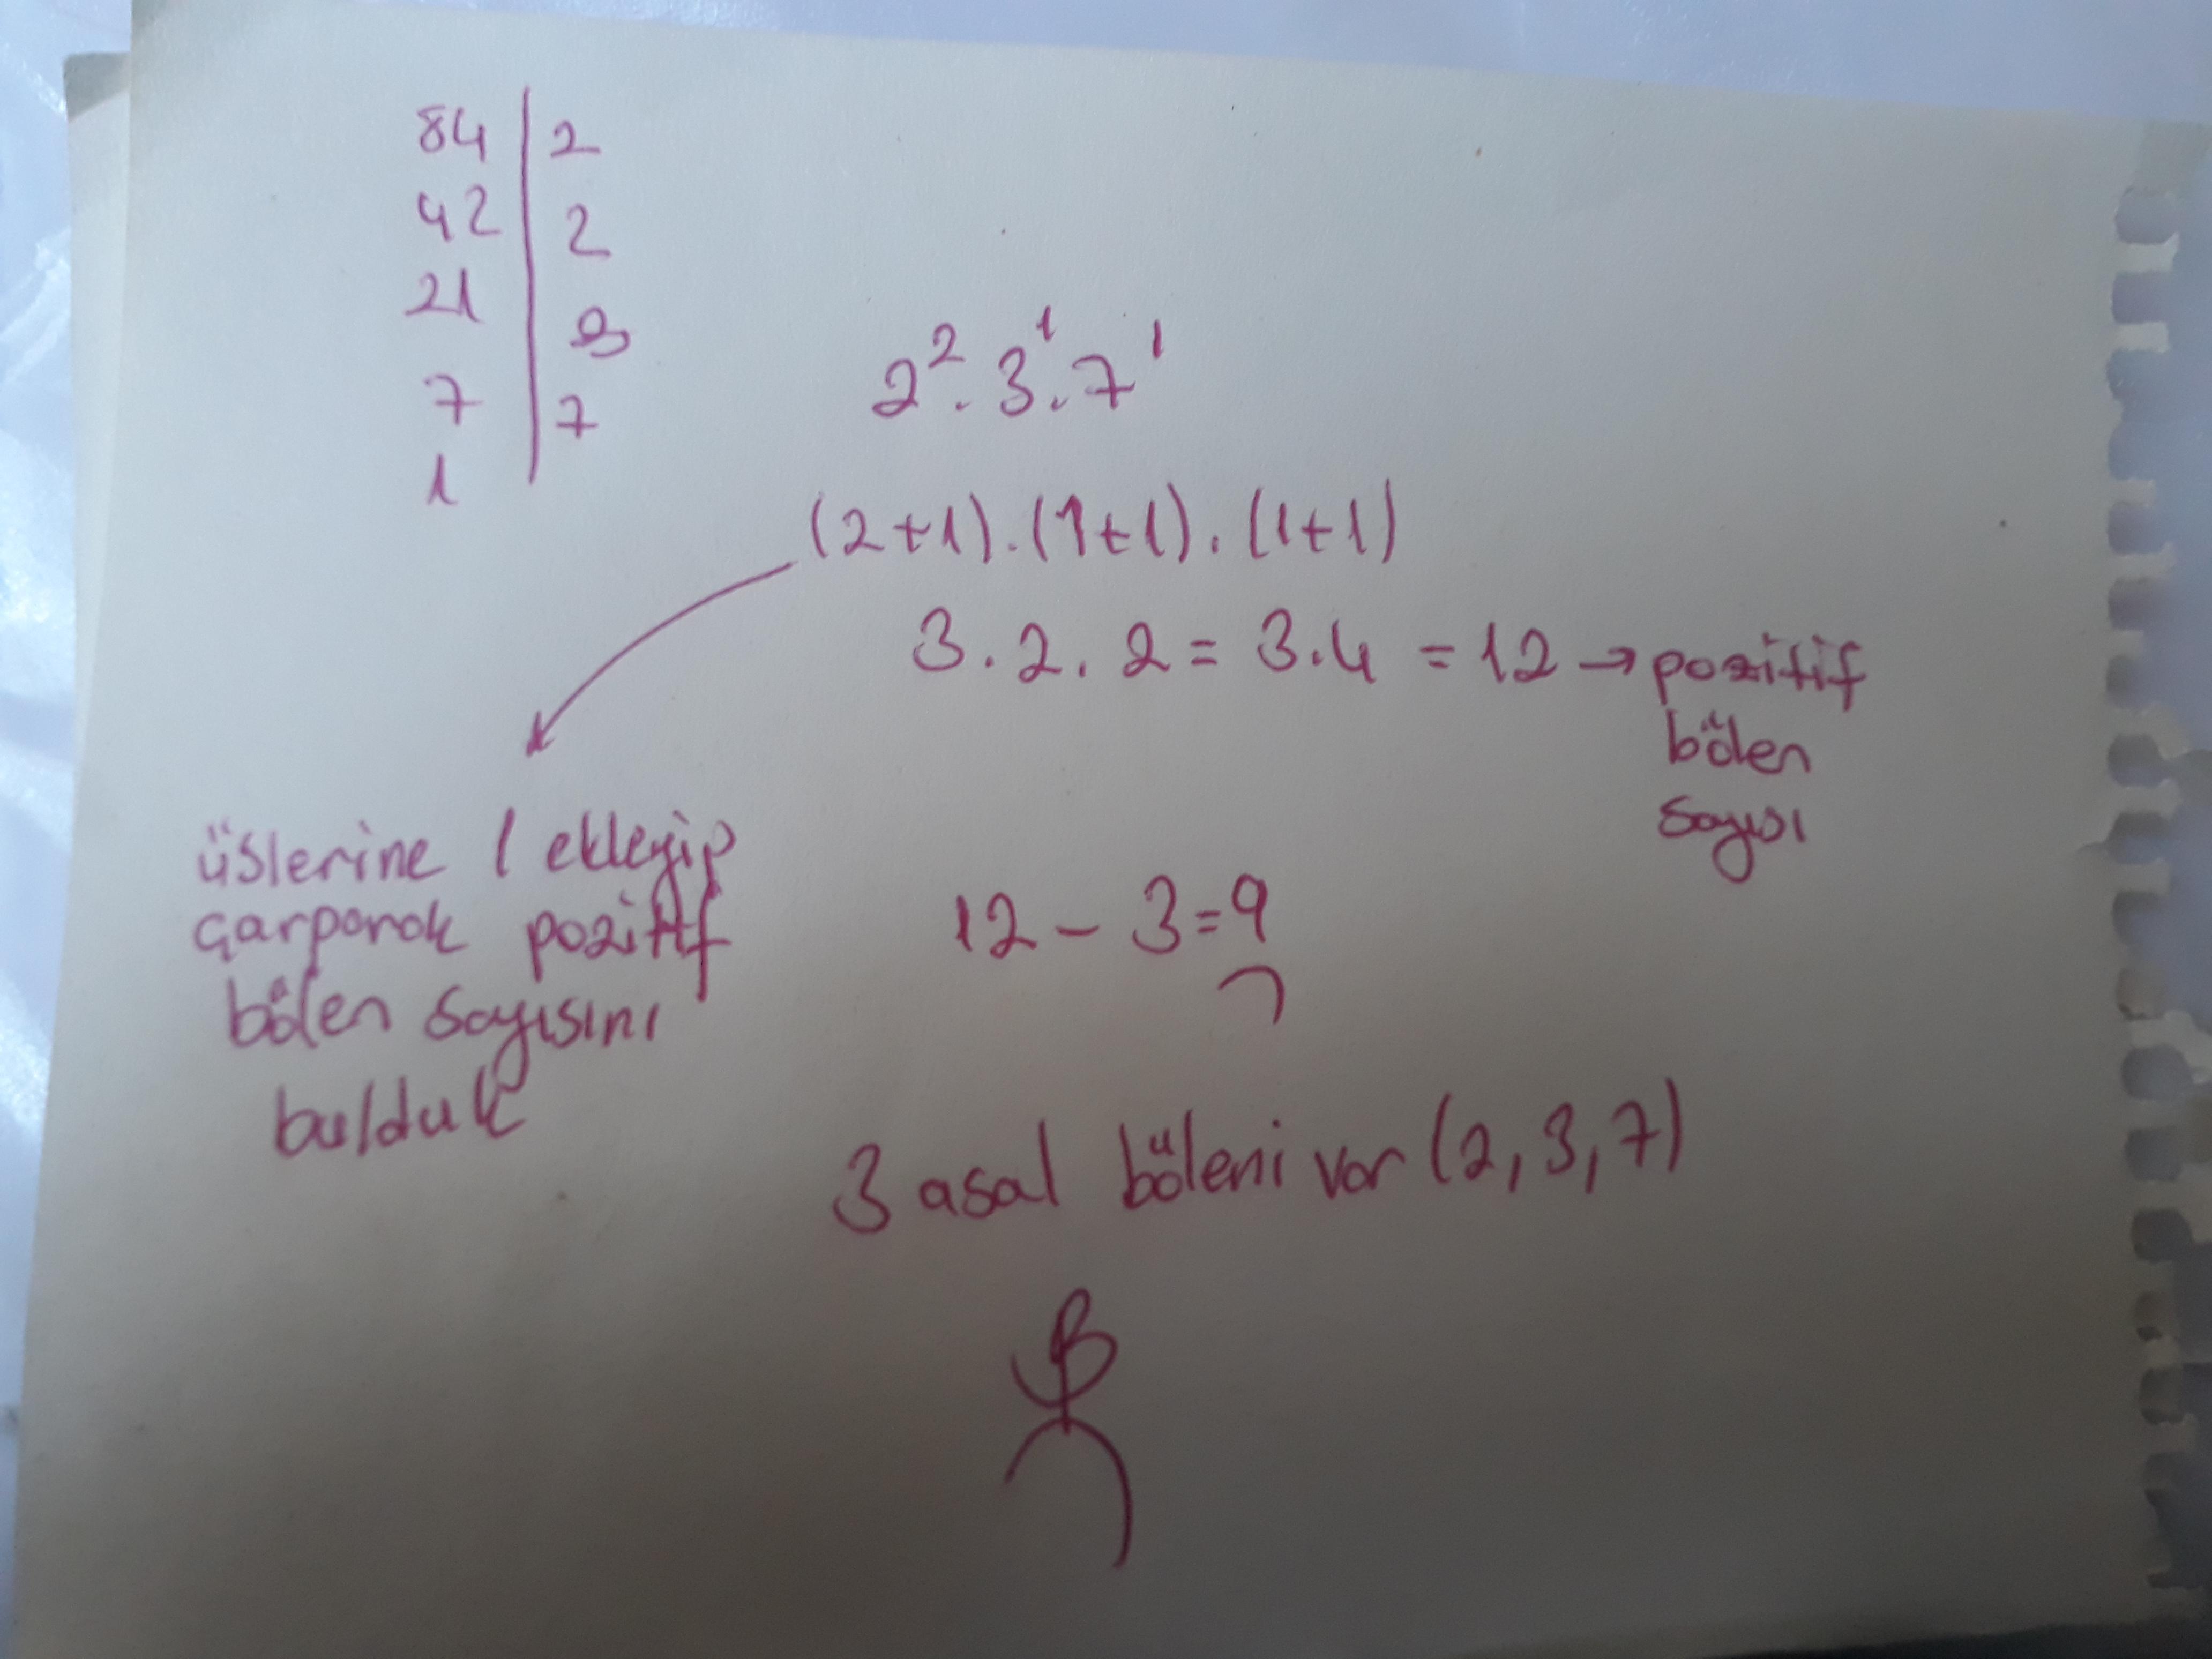 84 | 2
42 | 2
21 | 3
7 | 7
1
2² . 3¹ . 7¹
(2+1) . (1+1) . (1+1)
3 . 2 . 2 = 3.4 = 12 → pozitif
bölen
sayısı
üslerine 1 ekleyip
çarparak pozitif
bölen sayısını
bulduk
12 - 3 = 9
3 asal böleni var (2, 3, 7)